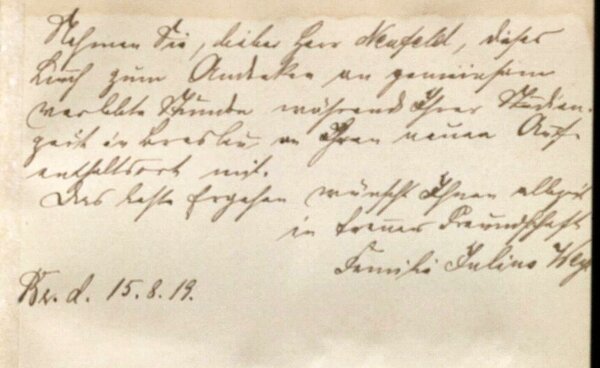 Nehmen Sie, lieber Herr Neufeld, dieses
Buch zum Andenken an gemeinsam
verlebte Stunden während Ihrer Studien-
zeit in Breslau an Ihren neuen Aufent-
enthaltsort mit.
Das beste Ergehen wünscht Ihnen allezeit
in treuer Freundschaft
Familie Julius
Br. d. 15.8.19.